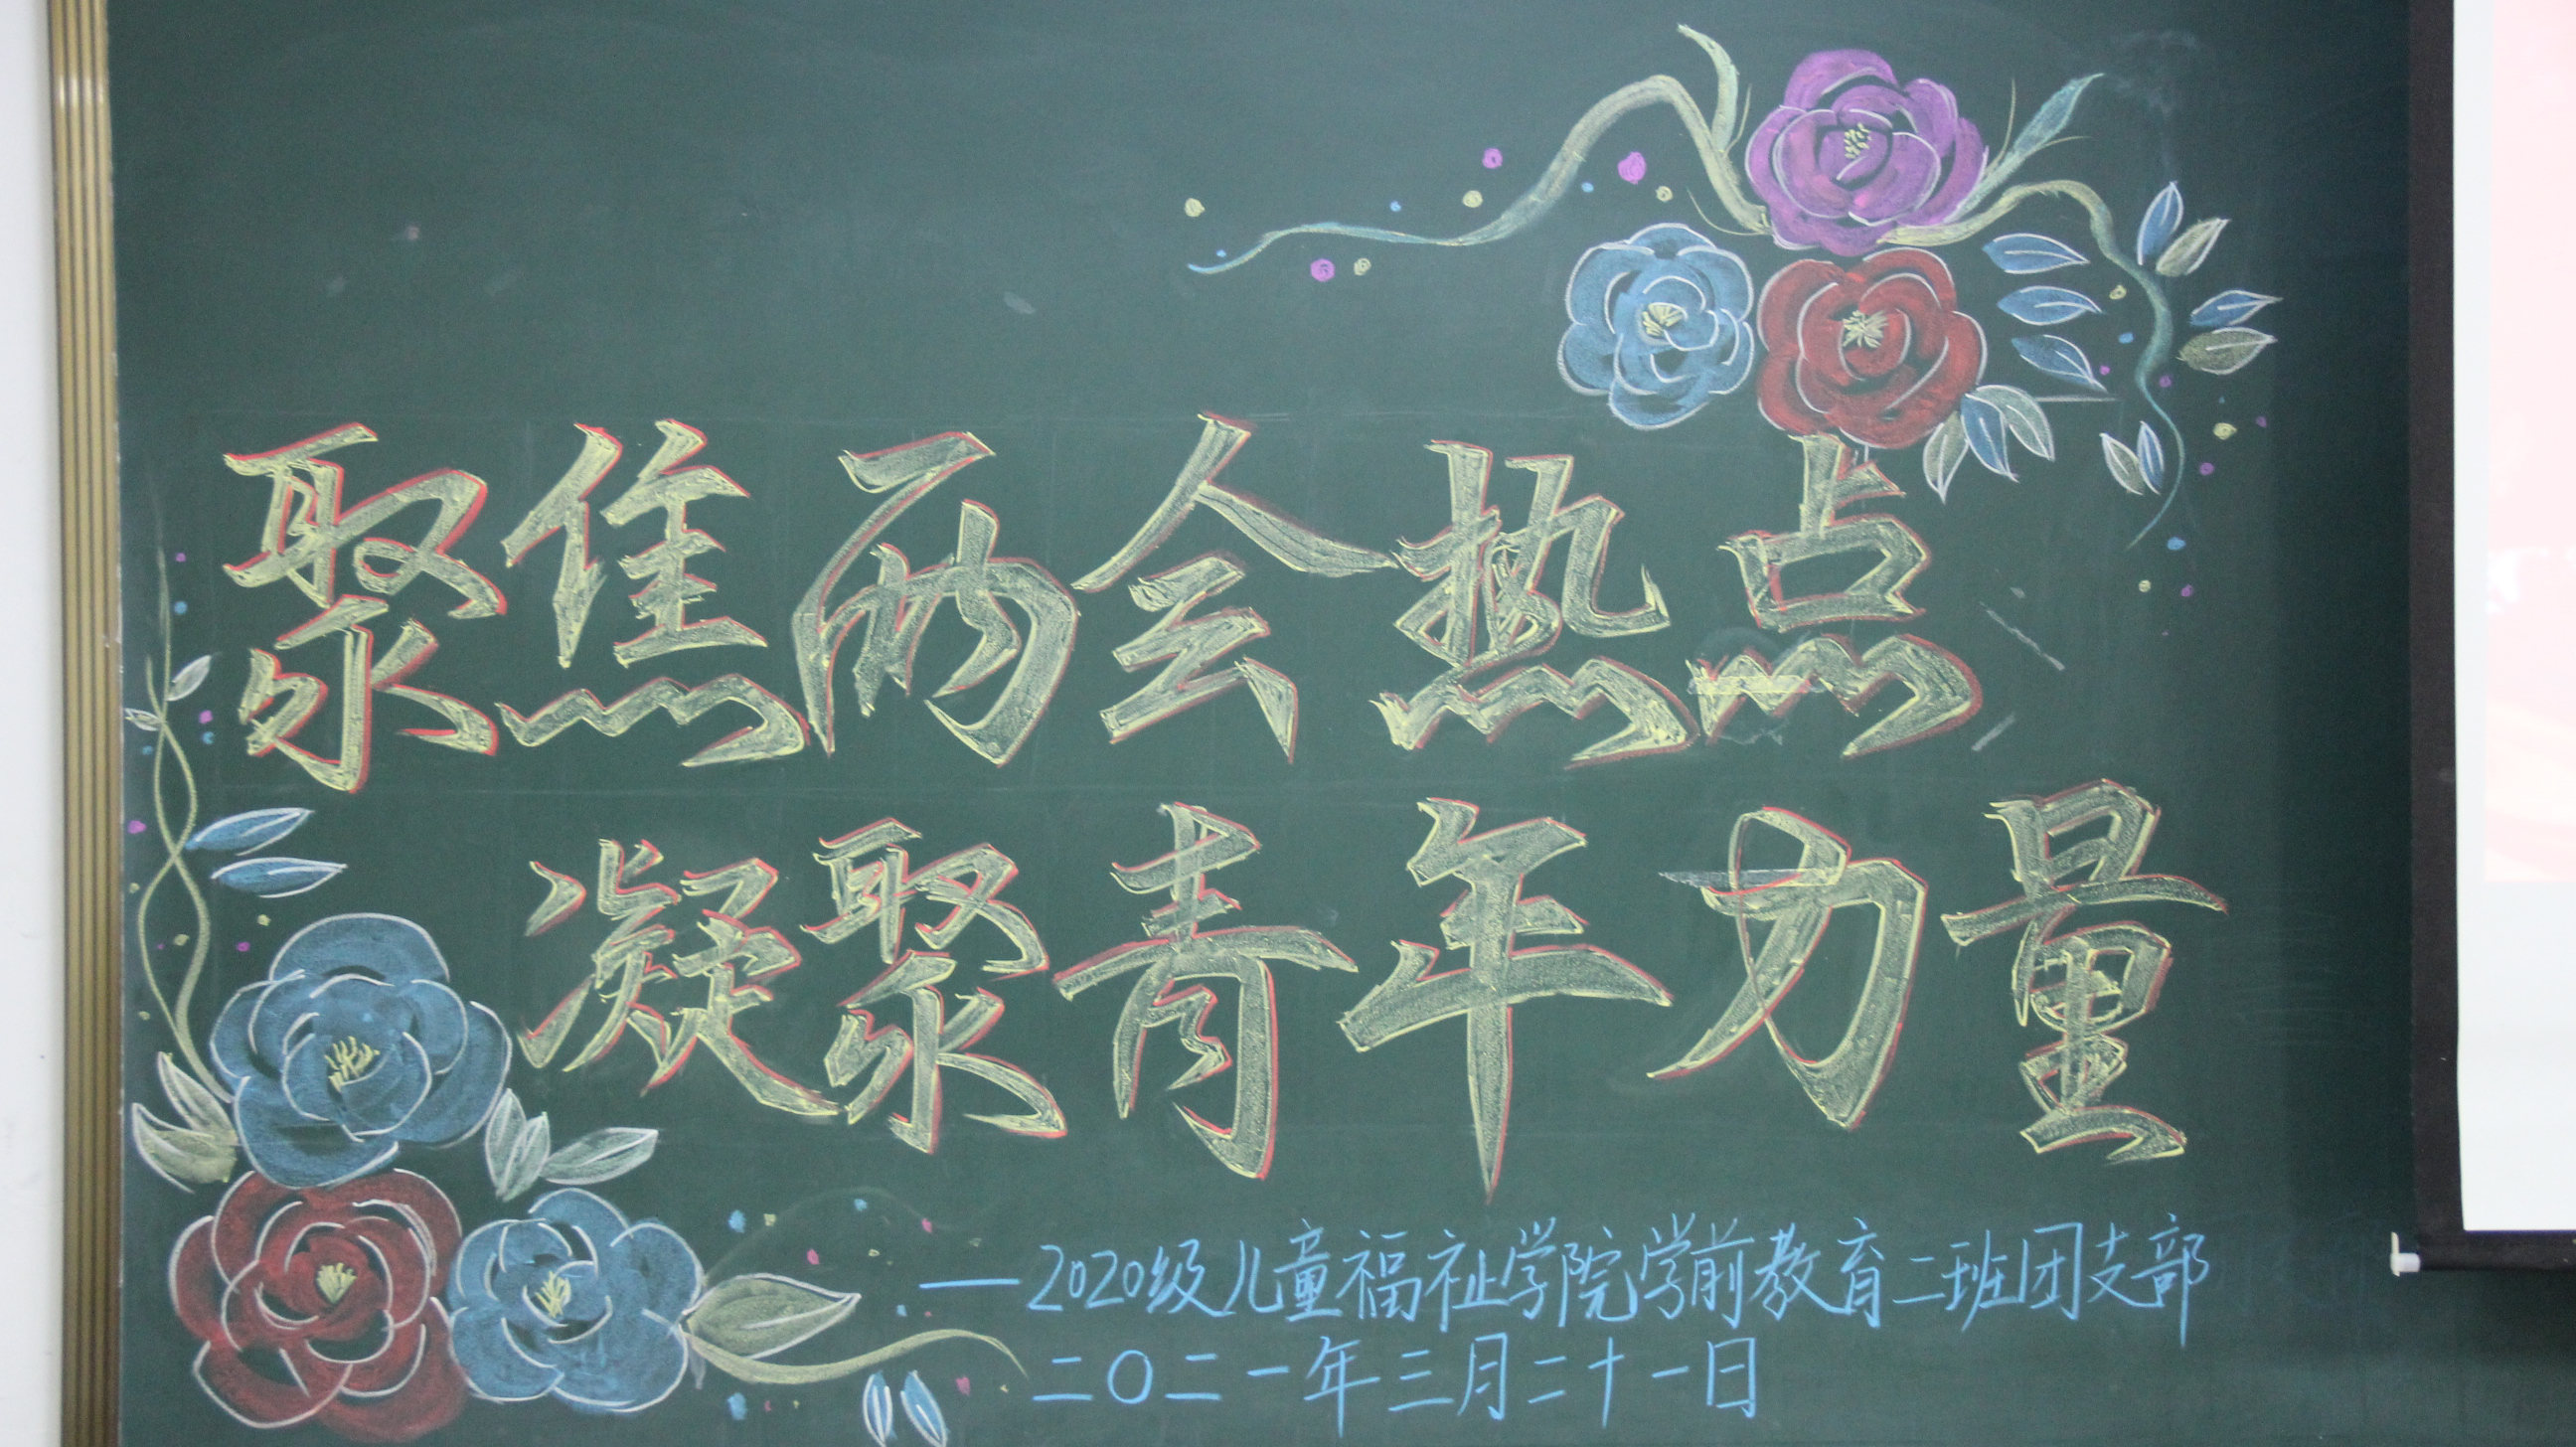 聚焦两会热点
凝聚青年力量
——2020级儿童福祉学院学前教育二班团支部
二〇二一年三月二十一日